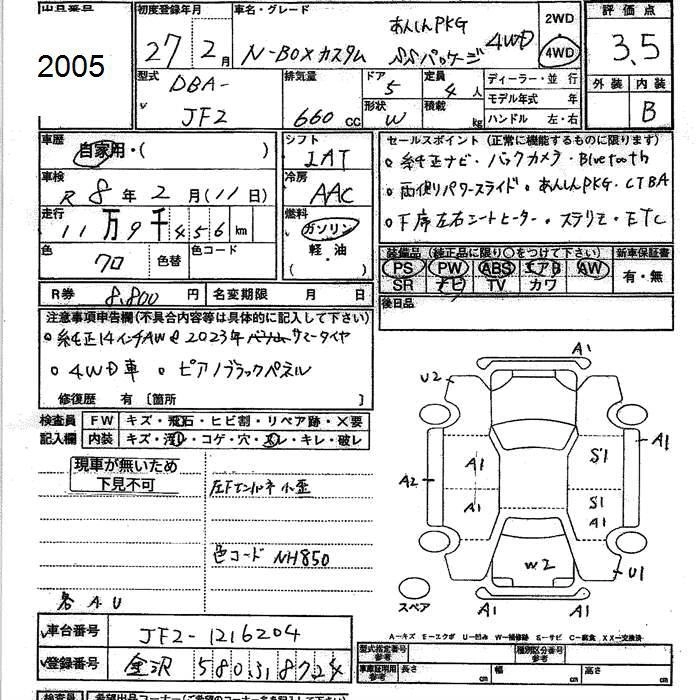 出品番号 初度登録年月 車名・グレード 評価点
2005
27年2月 N-BOXカスタム あんしんPKG SSパッケージ 4WD
2WD
4WD
3.5
型式 排気量 ドア 定員 ディーラー・並行 外装 内装
DBA- 5 4人 モデル年式 年
JF2 660cc 形状 W 積載 kg ハンドル 左・右 B
車歴 シフト セールスポイント (正常に機能するものに限ります)
自家用・( ) IAT
。純正ナビ・バックカメラ・Bluetooth
車検 冷房
R8年2月(11日) AAC
。両側パワースライド。あんしんPKG、CTBA
走行 燃料
11万9千456km ガソリン
。下席左右シートヒーター・ステリモ・ETC
色 色替 色コード 軽・油
クロ ( )
装備品 (純正品に限り○をつけて下さい) 新車保証書
PS PW ABS エアB AW 有・無
SR ナビ TV カワ
R券 8,800円 名変期限 月 日
後日品
注意事項申告欄(不具合内容等は具体的に記入して下さい)
。純正14インチAW 2023年 サマータイヤ
。4WD車 。ピアノブラックパネル
修復歴 有 〔箇所 〕
検査員 FW キズ・飛石・ヒビ割・リペア跡・×要
記入欄 内装 キズ・汚レ・コゲ・穴・スレ・キレ・破レ
現車が無いため
下見不可
左Fインナー 小歪
色コード NH850
各AU
A1
U2
A1 S1 A1
A2
A1 S1
A1
W2
U1
A1 A1
スペア
A-キズ E-エクボ U-凹み W-補修跡 S-サビ C-腐食 XX-交換済
車台番号 JF2-1216204
型式指定番号 参考 種別区分番号 参考
登録番号 金沢 580 す 8724
車庫証明用 参考 長さ 幅 高さ
cm cm cm
検査員 希望出品コーナー